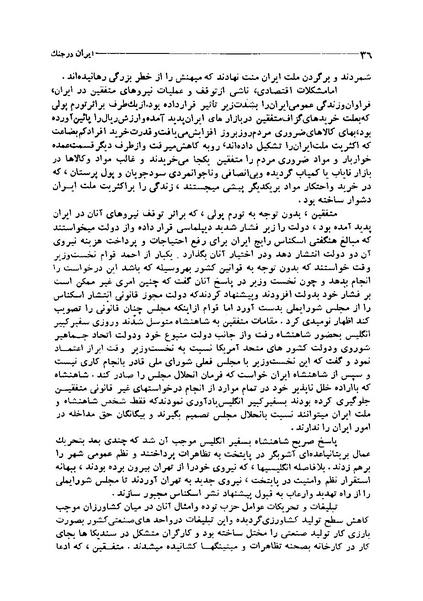 ۳۶ ایران درجنك
شمردند و برگردن ملت ایران منت نهادند که میهنش را از خطر بزرگی رهانیده‌اند .
امامشکلات اقتصادی، ناشی ازتوقف و عملیات نیروهای متفقین در ایران،
فراوان‌وزندگی عمومی‌ایران‌را بشدت‌زیر تأثیر قرارداده بود.ازیك‌طرف براثرتورم پولی
که‌بعلت خریدهای‌گزاف‌متفقین دربازار های ایران پدیدآمده‌وارزش‌ریال‌را پائین‌آورده
بود،بهای کالاهای‌ضروری مردم‌روزبروز افزایش‌می‌یافت‌وقدرت‌خرید افرادکم‌بضاعت
که اکثریت ملت‌ایران‌را تشکیل داده‌اند،روبه کاهش‌میرفت وازطرف دیگرقسمت‌عمده
خواربار و مواد ضروری مردم را متفقین یکجا می‌خریدند و غالب مواد وکالاها در
بازار نایاب یا کمیاب گردیده وبی‌انصافی وناجوانمردی سودجویان و پول پرستان ، که
در خرید واحتکار مواد بریکدیگر پیشی میجستند ، زندگی را براکثریت ملت ایران
دشوار ساخته بود .
متفقین ، بدون توجه به تورم پولی ، که بر اثر توقف نیروهای آنان در ایران
پدید آمده بود ، دولت را زیر فشار شدید دیپلماسی قرار داده وازدولت میخواستند
که مبالغ هنگفتی اسکناس رایج ایران برای رفع احتیاجات و پرداخت هزینه نیروی
آن دو دولت انتشار دهد ودر اختیار آنان بگذارد . یکبار از احمد قوام نخست‌وزیر
وقت خواستند که بدون توجه به قوانین کشور بهروسیله که باشد این درخواست را
انجام بدهد و چون نخست وزیر در پاسخ آنان گفت که چنین امری غیر ممکن است
بر فشار خود بدولت افزودند وپیشنهاد کردندکه دولت مجوز قانونی انتشار اسکناس
را از مجلس شورایملی بدست آورد اما قوام ازاینکه مجلس چنان قانونی را تصویب
کند اظهار نومیدی کرد . مقامات متفقین به شاهنشاه متوسل شدند وروزی سفیر کبیر
انگلیس بحضور شاهنشاه رفت واز جانب دولت متبوع خود ودولت اتحاد جماهیر
شوروی ودولت کشور های متحد آمریکا نسبت به نخست‌وزیر وقت ابراز اعتماد
نمود و گفت که این نخست‌وزیر با مجلس فعلی شورای ملی قادر بانجام کاری نیست
و سپس از شاهنشاه ایران خواست که فرمان انحلال مجلس را صادر کند . شاهنشاه
که بااراده خلل ناپذیر خود در تمام موارد از انجام درخواستهای غیر قانونی متفقین
جلوگیری کرده بودند بسفیر کبیر انگلیس‌یادآوری نمودندکه فقط شخص شاهنشاه و
ملت ایران میتوانند نسبت بانحلال مجلس تصمیم بگیرند و بیگانگان حق مداخله در
امور ایران را ندارند .
پاسخ صریح شاهنشاه بسفیر انگلیس موجب آن شد که چندی بعد بتحریك
عمال بریتانیاعده‌ای آشوبگر در پایتخت به تظاهرات پرداختند و نظم عمومی شهر را
برهم زدند . بلافاصله انگلیسیها ، که نیروی خودرا از تهران بیرون برده بودند ، ببهانه
استقرار نظم وامنیت در پایتخت ، نیروی جدید به تهران آوردند تا مجلس شورایملی
را از راه تهدید وارعاب به قبول پیشنهاد نشر اسکناس مجبور سازند .
تبلیغات و تحریکات عوامل حزب توده وامثال آنان در میان کشاورزان موجب
کاهش سطح تولید کشاورزی‌گردیده واین تبلیغات درواحد های‌صنعتی‌کشور بصورت
بارزی کار تولید صنعتی را مختل ساخته بود و کارگران متشکل در سندیکا ها بجای
کار در کارخانه بصحنه تظاهرات و میتینگها کشانیده میشدند . متفقین ، که ادعا